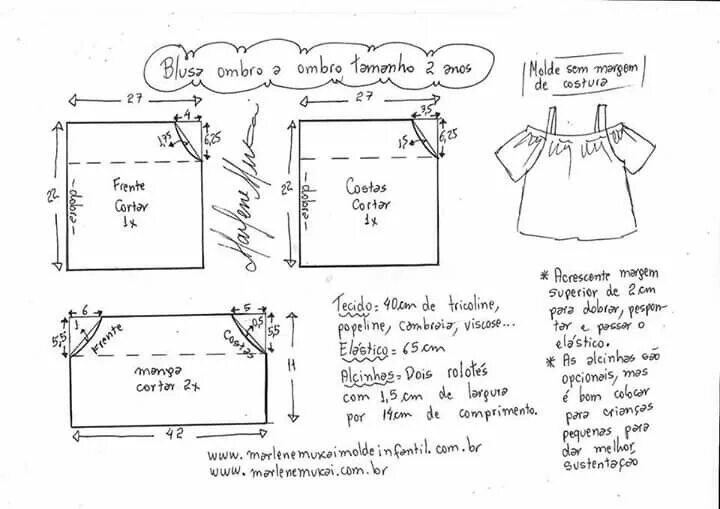 Blusa ombro a ombro tamanho 2 anos
Molde sem margem
de costura
27
4
1,75
6,25
22
dobra
Frente
Cortar
1x
Marlene Mukai
27
3,5
1,5
6,25
22
dobra
Costas
Cortar
1x
6
5
5,5
1
Frente
Costas
0,5
5,5
manga
cortar 2x
11
42
Tecido: 40cm de tricoline,
popeline, cambraia, viscose...
Elástico = 65cm
Alcinhas = Dois rolotés
com 1,5cm de largura
por 14cm de comprimento.
* Acrescente margem
superior de 2cm
para dobrar, pespon-
tar e passar o
elástico.
* As alcinhas são
opcionais, mas
é bom colocar
para crianças
pequenas para
dar melhor
sustentação
www.marlenemukaimoldeinfantil.com.br
www.marlenemukai.com.br